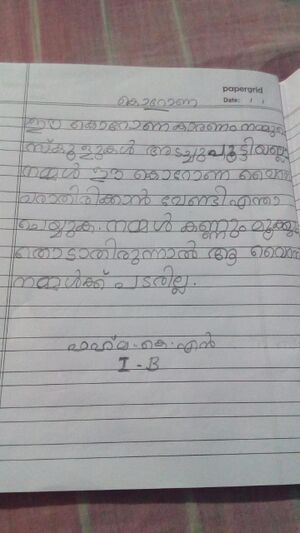 papergrid
Date: / /
കൊറോണ
ഈ കൊറോണ കാരണം നമ്മുടെ
സ്കൂളുകൾ അടച്ചുപൂട്ടിയല്ലോ
നമ്മൾ ഈ കൊറോണ വൈറസ്
പരാതിരിക്കാൻ വേണ്ടി എന്താ
ചെയ്യുക. നമ്മൾ കണ്ണും മൂക്കും
തൊടാതിരുന്നാൽ ആ വൈറസ്
നമ്മൾക്ക് പടരില്ല.
ഫഹ്മ. കെ. എൻ
I - B